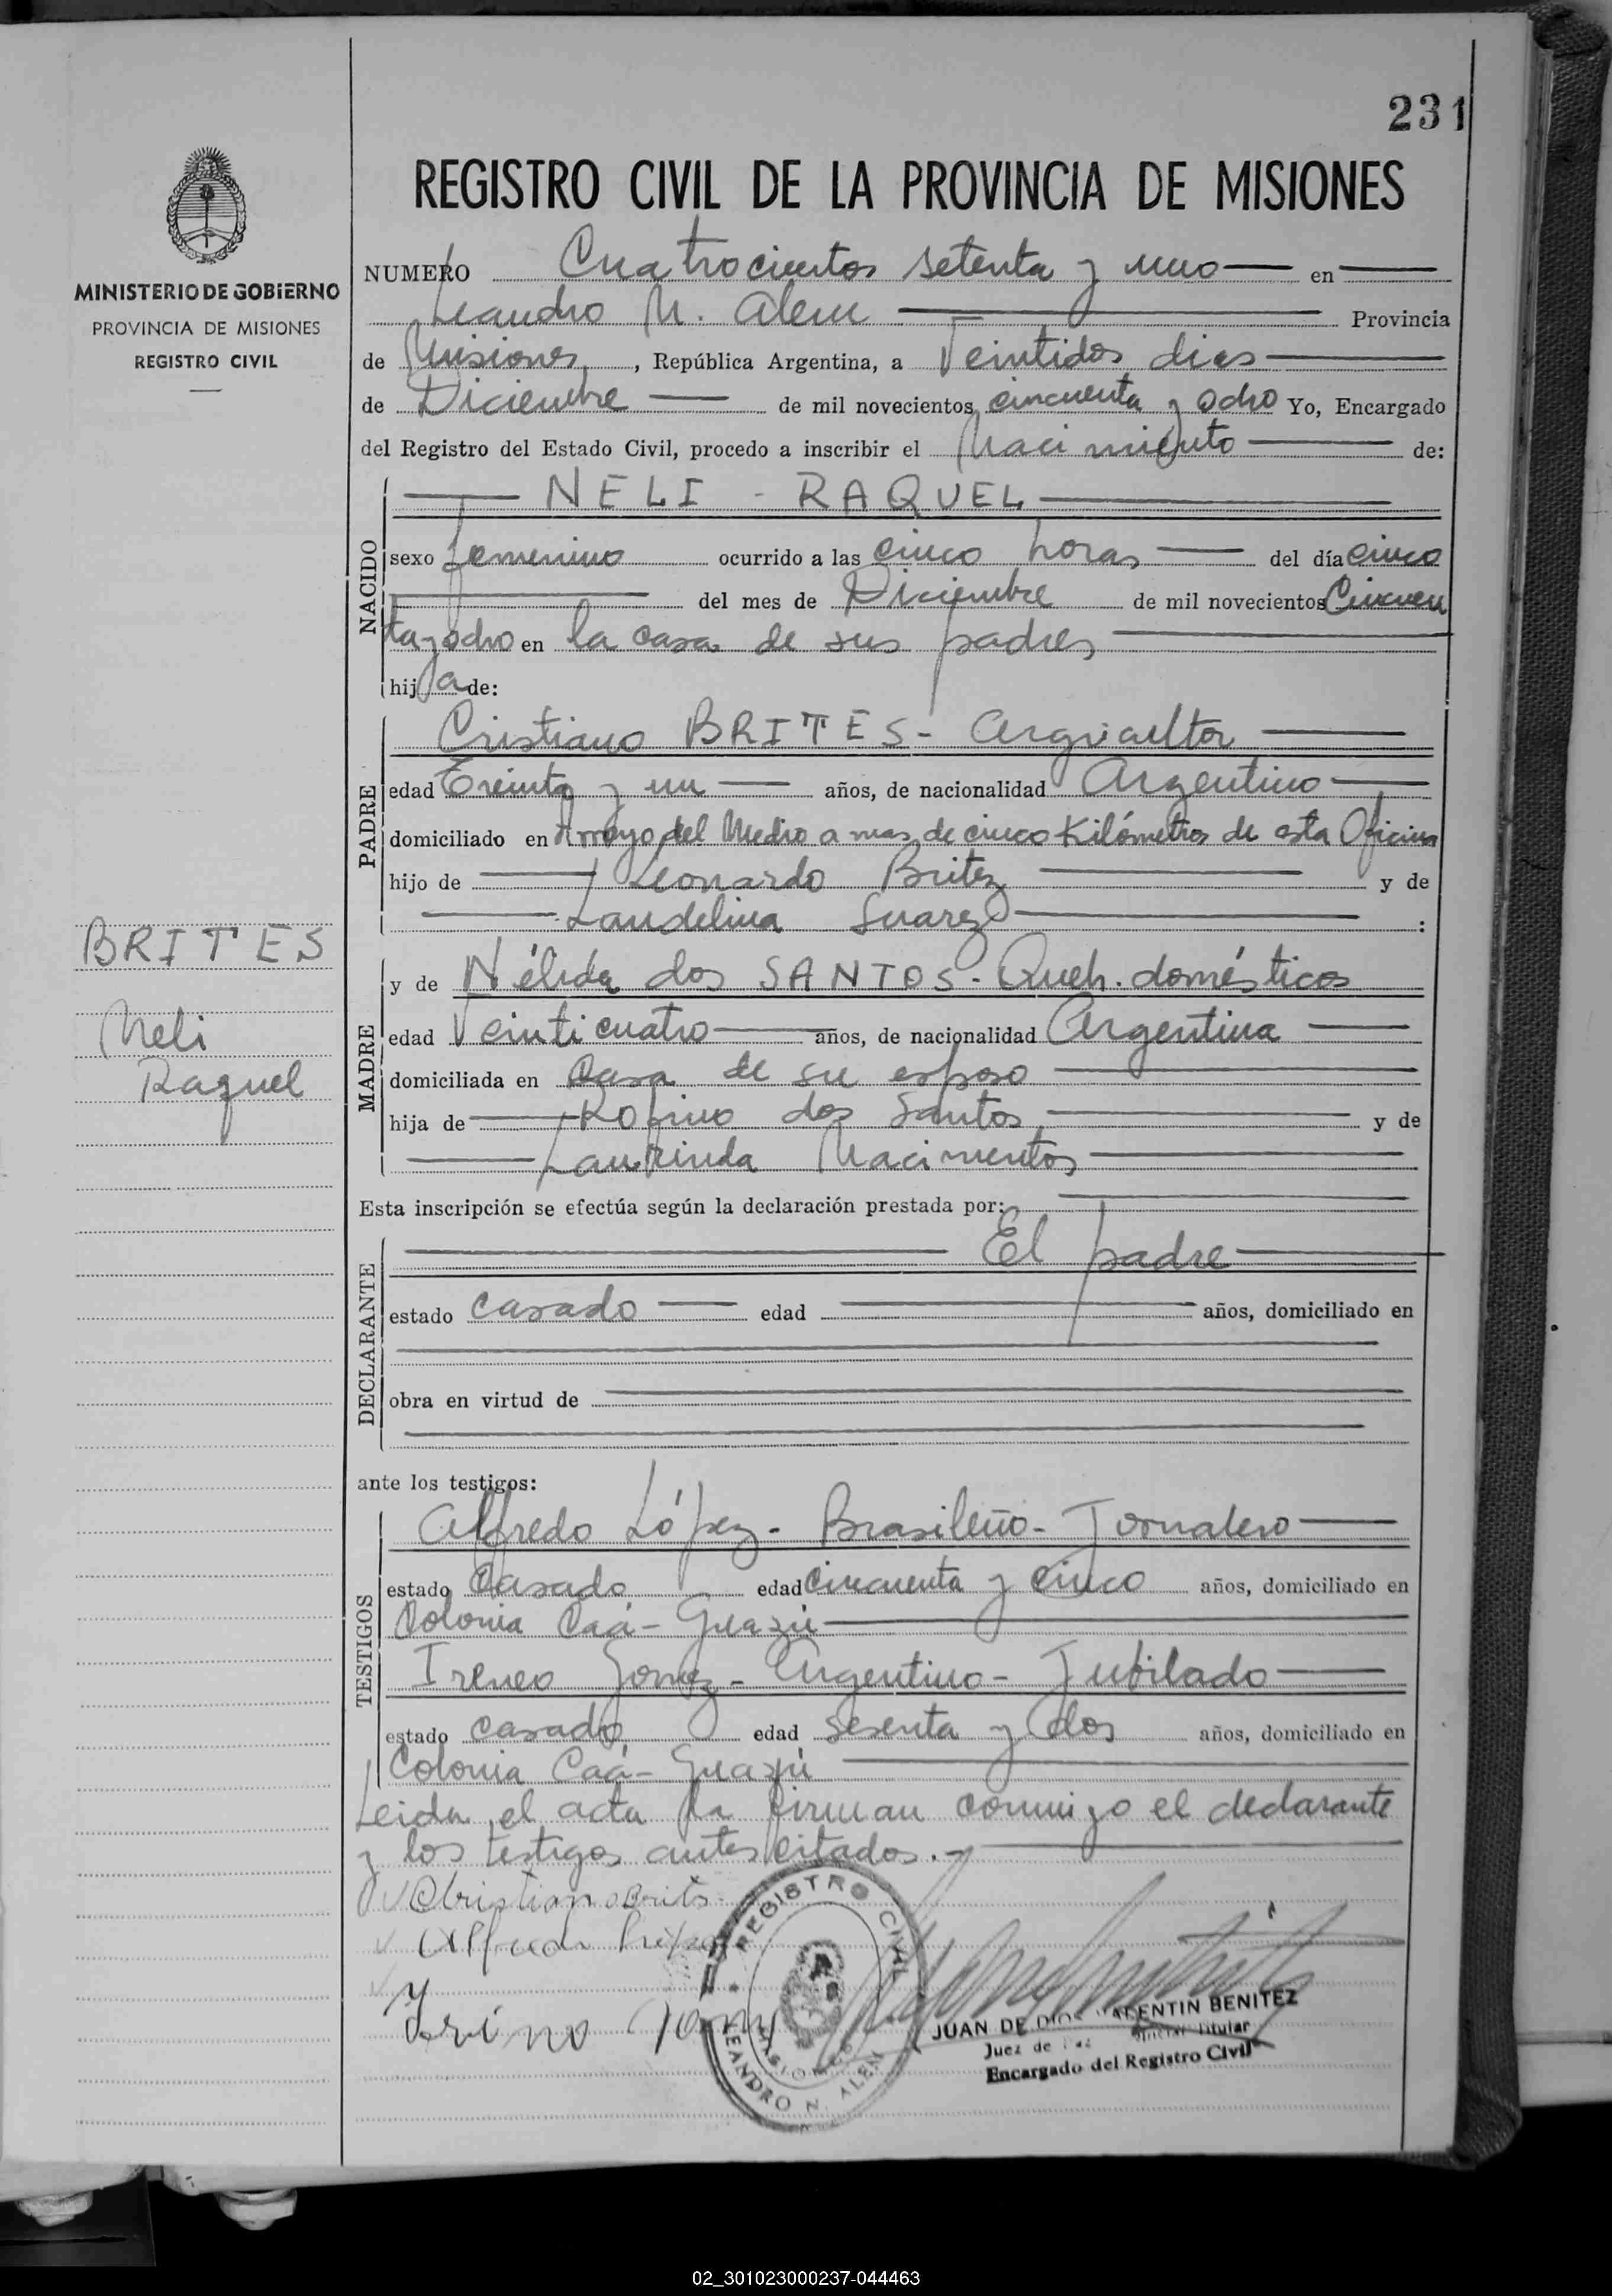 231
REGISTRO CIVIL DE LA PROVINCIA DE MISIONES
MINISTERIO DE GOBIERNO
PROVINCIA DE MISIONES
REGISTRO CIVIL
NUMERO Cuatrocientos setenta y uno en
Leandro N. Alem Provincia
de Misiones, República Argentina, a Veintidos dias
de Diciembre de mil novecientos cincuenta y ocho Yo, Encargado
del Registro del Estado Civil, procedo a inscribir el Nacimiento de:
NACIDO
NELI - RAQUEL
sexo femenino ocurrido a las cinco horas del día cinco
del mes de Diciembre de mil novecientos Cincuen
ta y ocho en la casa de sus padres
hija de:
PADRE
Cristiano BRITES - Argricultor
edad Treinta y un años, de nacionalidad Argentino
domiciliado en Arroyo del Medio a mas de cinco Kilómetros de esta Oficina
hijo de Leonardo Britez y de
Landelina Suarez :
BRITES
Neli
Raquel
MADRE
y de Nélida dos SANTOS - Queh. domésticos
edad Veinticuatro años, de nacionalidad Argentina
domiciliada en Casa de su esposo
hija de Rofino dos Santos y de
Laurinda Nacimentos
Esta inscripción se efectúa según la declaración prestada por:
DECLARANTE
El padre
estado casado edad años, domiciliado en
obra en virtud de
ante los testigos:
TESTIGOS
Alfredo López - Brasileño - Jornalero
estado Casado edad cincuenta y cinco años, domiciliado en
Colonia Caá-Guazú
Ireneo Gomez - Argentino - Jubilado
estado casado edad sesenta y dos años, domiciliado en
Colonia Caá-Guazú
Leida el acta la firman conmigo el declarante
y los testigos antes citados.-
Christiano Brits
Alfredo
Irino Gomy
REGISTRO CIVIL
MISIONES
LEANDRO N. ALEM
JUAN DE DIOS VALENTIN BENITEZ
Juez de Paz Titular
Encargado del Registro Civil
02_301023000237-044463